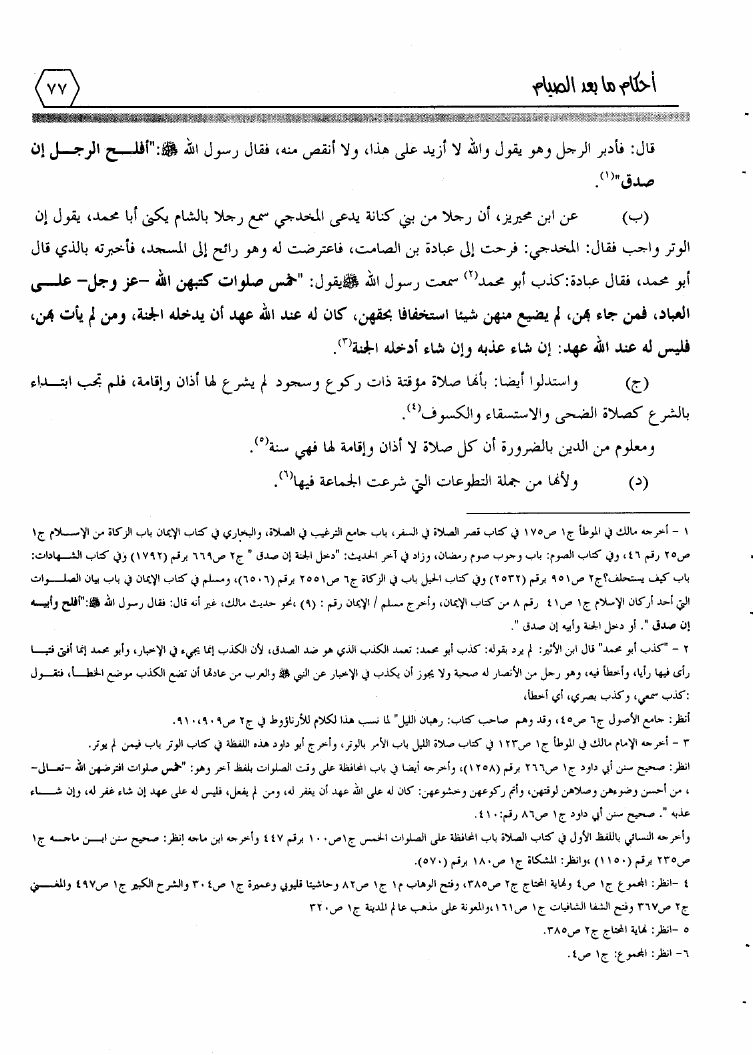 أحكام ما بعد الصيام
٧٧
قال: فأدبر الرجل وهو يقول والله لا أزيد على هذا، ولا أنقص منه، فقال رسول الله ﷺ:"أفلح الرجل إن
صدق"(١).
(ب) عن ابن محيريز، أن رجلا من بني كنانة يدعى المخدجي سمع رجلا بالشام يكنى أبا محمد، يقول إن
الوتر واجب فقال: المخدجي: فرحت إلى عبادة بن الصامت، فاعترضت له وهو رائح إلى المسجد، فأخبرته بالذي قال
أبو محمد، فقال عبادة:كذب أبو محمد(٢) سمعت رسول الله ﷺيقول: "خمس صلوات كتبهن الله -عز وجل- على
العباد، فمن جاء بهن، لم يضيع منهن شيئا استخفافا بحقهن، كان له عند الله عهد أن يدخله الجنة، ومن لم يأت بهن،
فليس له عند الله عهد: إن شاء عذبه وإن شاء أدخله الجنة(٣).
(ج) واستدلوا أيضا: بأنها صلاة مؤقتة ذات ركوع وسجود لم يشرع لها أذان وإقامة، فلم تجب ابتداء
بالشرع كصلاة الضحى والاستسقاء والكسوف(٤).
ومعلوم من الدين بالضرورة أن كل صلاة لا أذان وإقامة لها فهي سنة(٥).
(د) ولأنها من جملة التطوعات التي شرعت الجماعة فيها(٦).
١ - أخرجه مالك في الموطأ ج١ ص١٧٥ في كتاب قصر الصلاة في السفر، باب جامع الترغيب في الصلاة، والبخاري في كتاب الإيمان باب الزكاة من الإسلام ج١
ص٢٥ رقم ٤٦، وفي كتاب الصوم: باب وجوب صوم رمضان، وزاد في آخر الحديث: "دخل الجنة إن صدق " ج٢ ص٦٦٩ برقم (١٧٩٢) وفي كتاب الشهادات:
باب كيف يستحلف؟ج٢ ص٩٥١ برقم (٢٥٣٢) وفي كتاب الحيل باب في الزكاة ج٦ ص٢٥٥١ برقم (٦٥٠٦)، ومسلم في كتاب الإيمان في باب بيان الصلوات
التي أحد أركان الإسلام ج١ ص٤١ رقم ٨ من كتاب الإيمان، وأخرج مسلم / الإيمان رقم : (٩) ،نحو حديث مالك، غير أنه قال: فقال رسول الله ﷺ:"أفلح وأبيه
إن صدق ". أو دخل الجنة وأبيه إن صدق ".
٢ - "كذب أبو محمد" قال ابن الأثير: لم يرد بقوله: كذب أبو محمد: تعمد الكذب الذي هو ضد الصدق، لأن الكذب إنما يجيء في الإخبار، وأبو محمد إنما أفتى فتيا
رأى فيها رأيا، وأخطأ فيه، وهو رجل من الأنصار له صحبة ولا يجوز أن يكذب في الإخبار عن النبي ﷺ والعرب من عادتها أن تضع الكذب موضع الخطأ، فتقول
:كذب سمعي، وكذب بصري، أي أخطأ،
أنظر: جامع الأصول ج٦ ص٤٥، وقد وهم صاحب كتاب: رهبان الليل" لما نسب هذا لكلام للأرناؤوط في ج٢ ص٩٠٩،٩١٠.
٣ - أخرجه الإمام مالك في الموطأ ج١ ص١٢٣ في كتاب صلاة الليل باب الأمر بالوتر، وأخرج أبو داود هذه اللفظة في كتاب الوتر باب فيمن لم يوتر.
انظر: صحيح سنن أبي داود ج١ ص٢٦٦ برقم (١٢٥٨)، وأخرجه أيضا في باب المحافظة على وقت الصلوات بلفظ آخر وهو: "خمس صلوات افترضهن الله -تعالى-
، من أحسن وضوءهن وصلاهن لوقتهن، وأتم ركوعهن وخشوعهن: كان له على الله عهد أن يغفر له، ومن لم يفعل، فليس له على عهد إن شاء غفر له، وإن شاء
عذبه ". صحيح سنن أبي داود ج١ ص٨٦ رقم:٤١٠.
وأخرجه النسائي باللفظ الأول في كتاب الصلاة باب المحافظة على الصلوات الخمس ج١ص١٠٠ برقم ٤٤٧ وأخرجه ابن ماجه إنظر: صحيح سنن ابن ماجه ج١
ص٢٣٥ برقم (١١٥٠) ،وانظر: المشكاة ج١ ص١٨٠ برقم (٥٧٠).
٤ -انظر: المجموع ج١ ص٤ ونهاية المحتاج ج٢ ص٣٨٥، وفتح الوهاب م١ ج١ ص٨٢ وحاشيتا قليوبي وعميرة ج١ ص٣٠٤ والشرح الكبير ج١ ص٤٩٧ والمغني
ج٢ ص٣٦٧ وفتح الشفا الشافيات ج١ ص١٦١،والمعونة على مذهب عالم المدينة ج١ ص٣٢٠
٥ -انظر: نهاية المحتاج ج٢ ص٣٨٥.
٦- انظر: المجموع: ج١ ص٤.